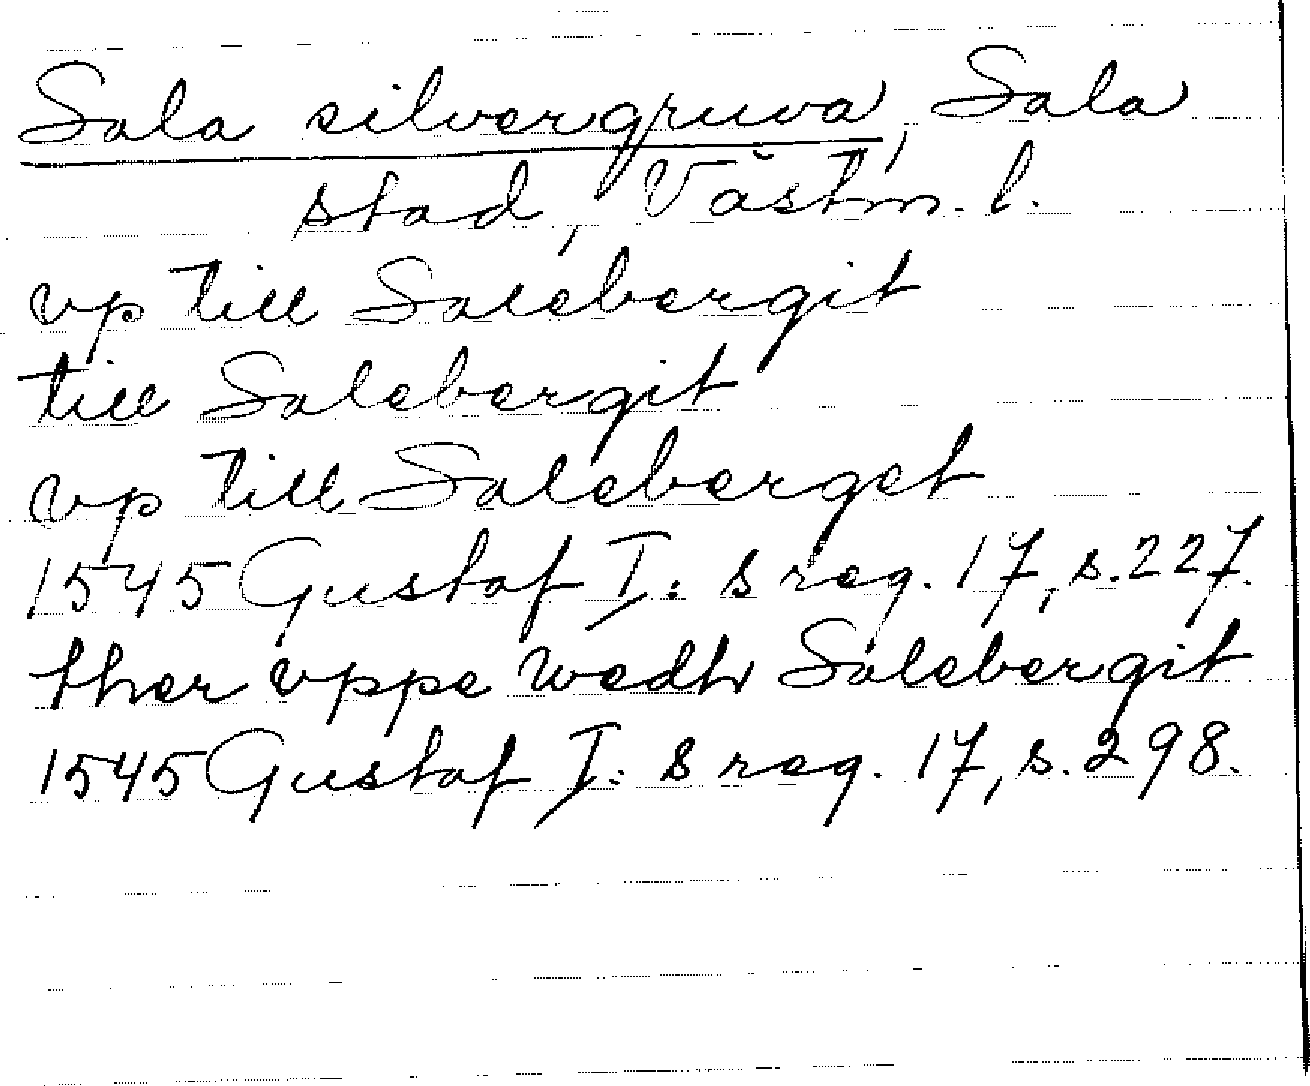 Sala silvergruva, Sala
stad, Västm. l.
vp till Salebergit
till Salebergit
vp till Saleberget
1545 Gustaf I: s reg. 17, s. 227.
ther vppe wedh Salebergit
1545 Gustaf I: s reg. 17, s. 298.